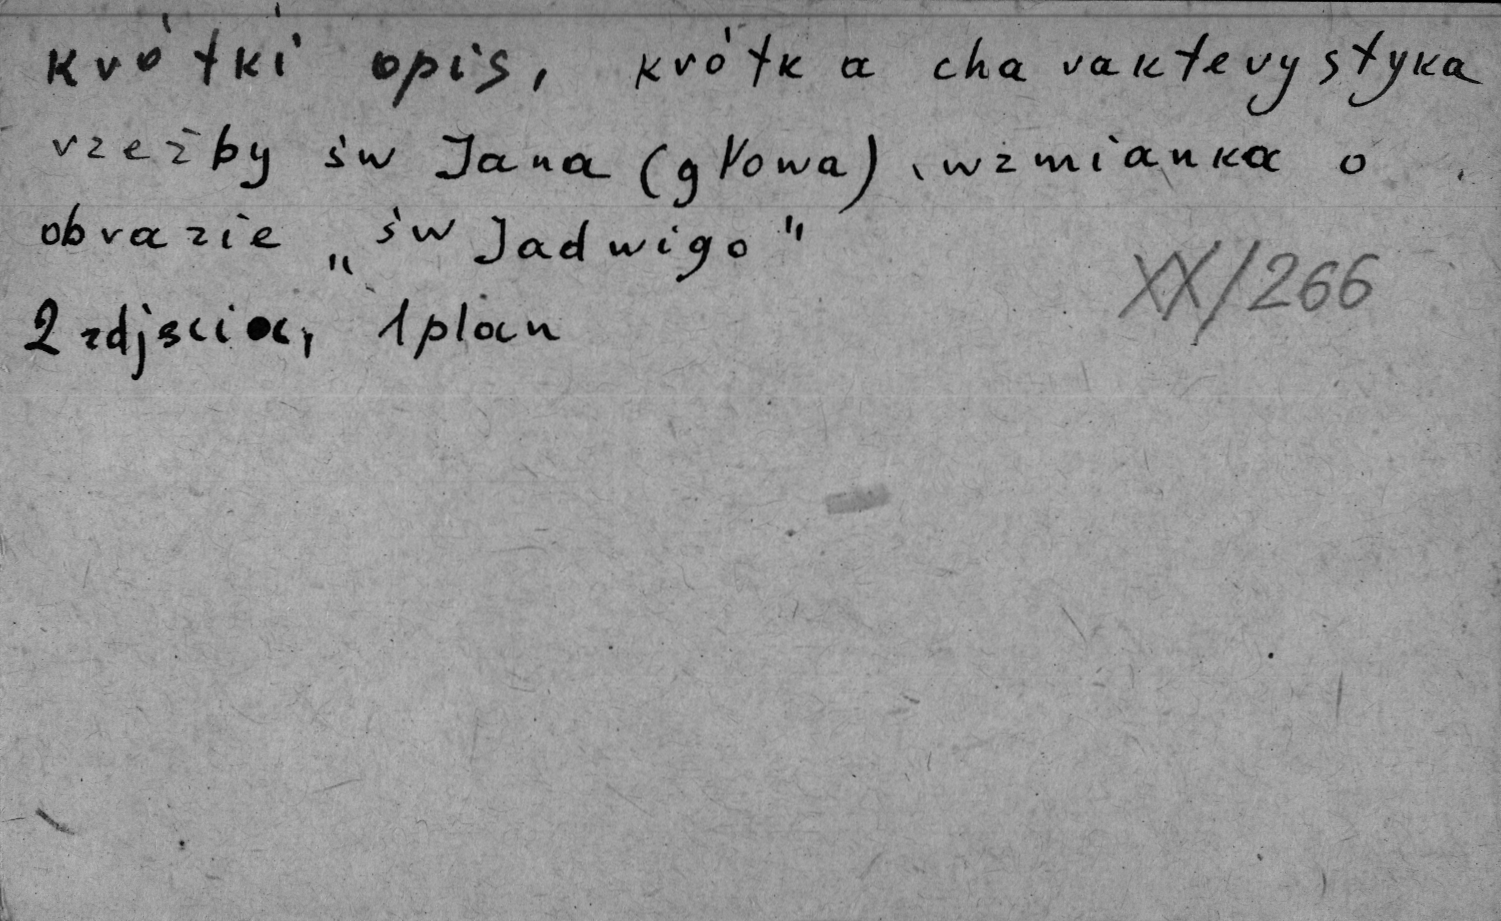 krótki opis, krótka charakterystyka
rzeźby św Jana (głowa), wzmianka o
obrazie „św Jadwigo"
XX/266
2 zdjscia, 1 plan